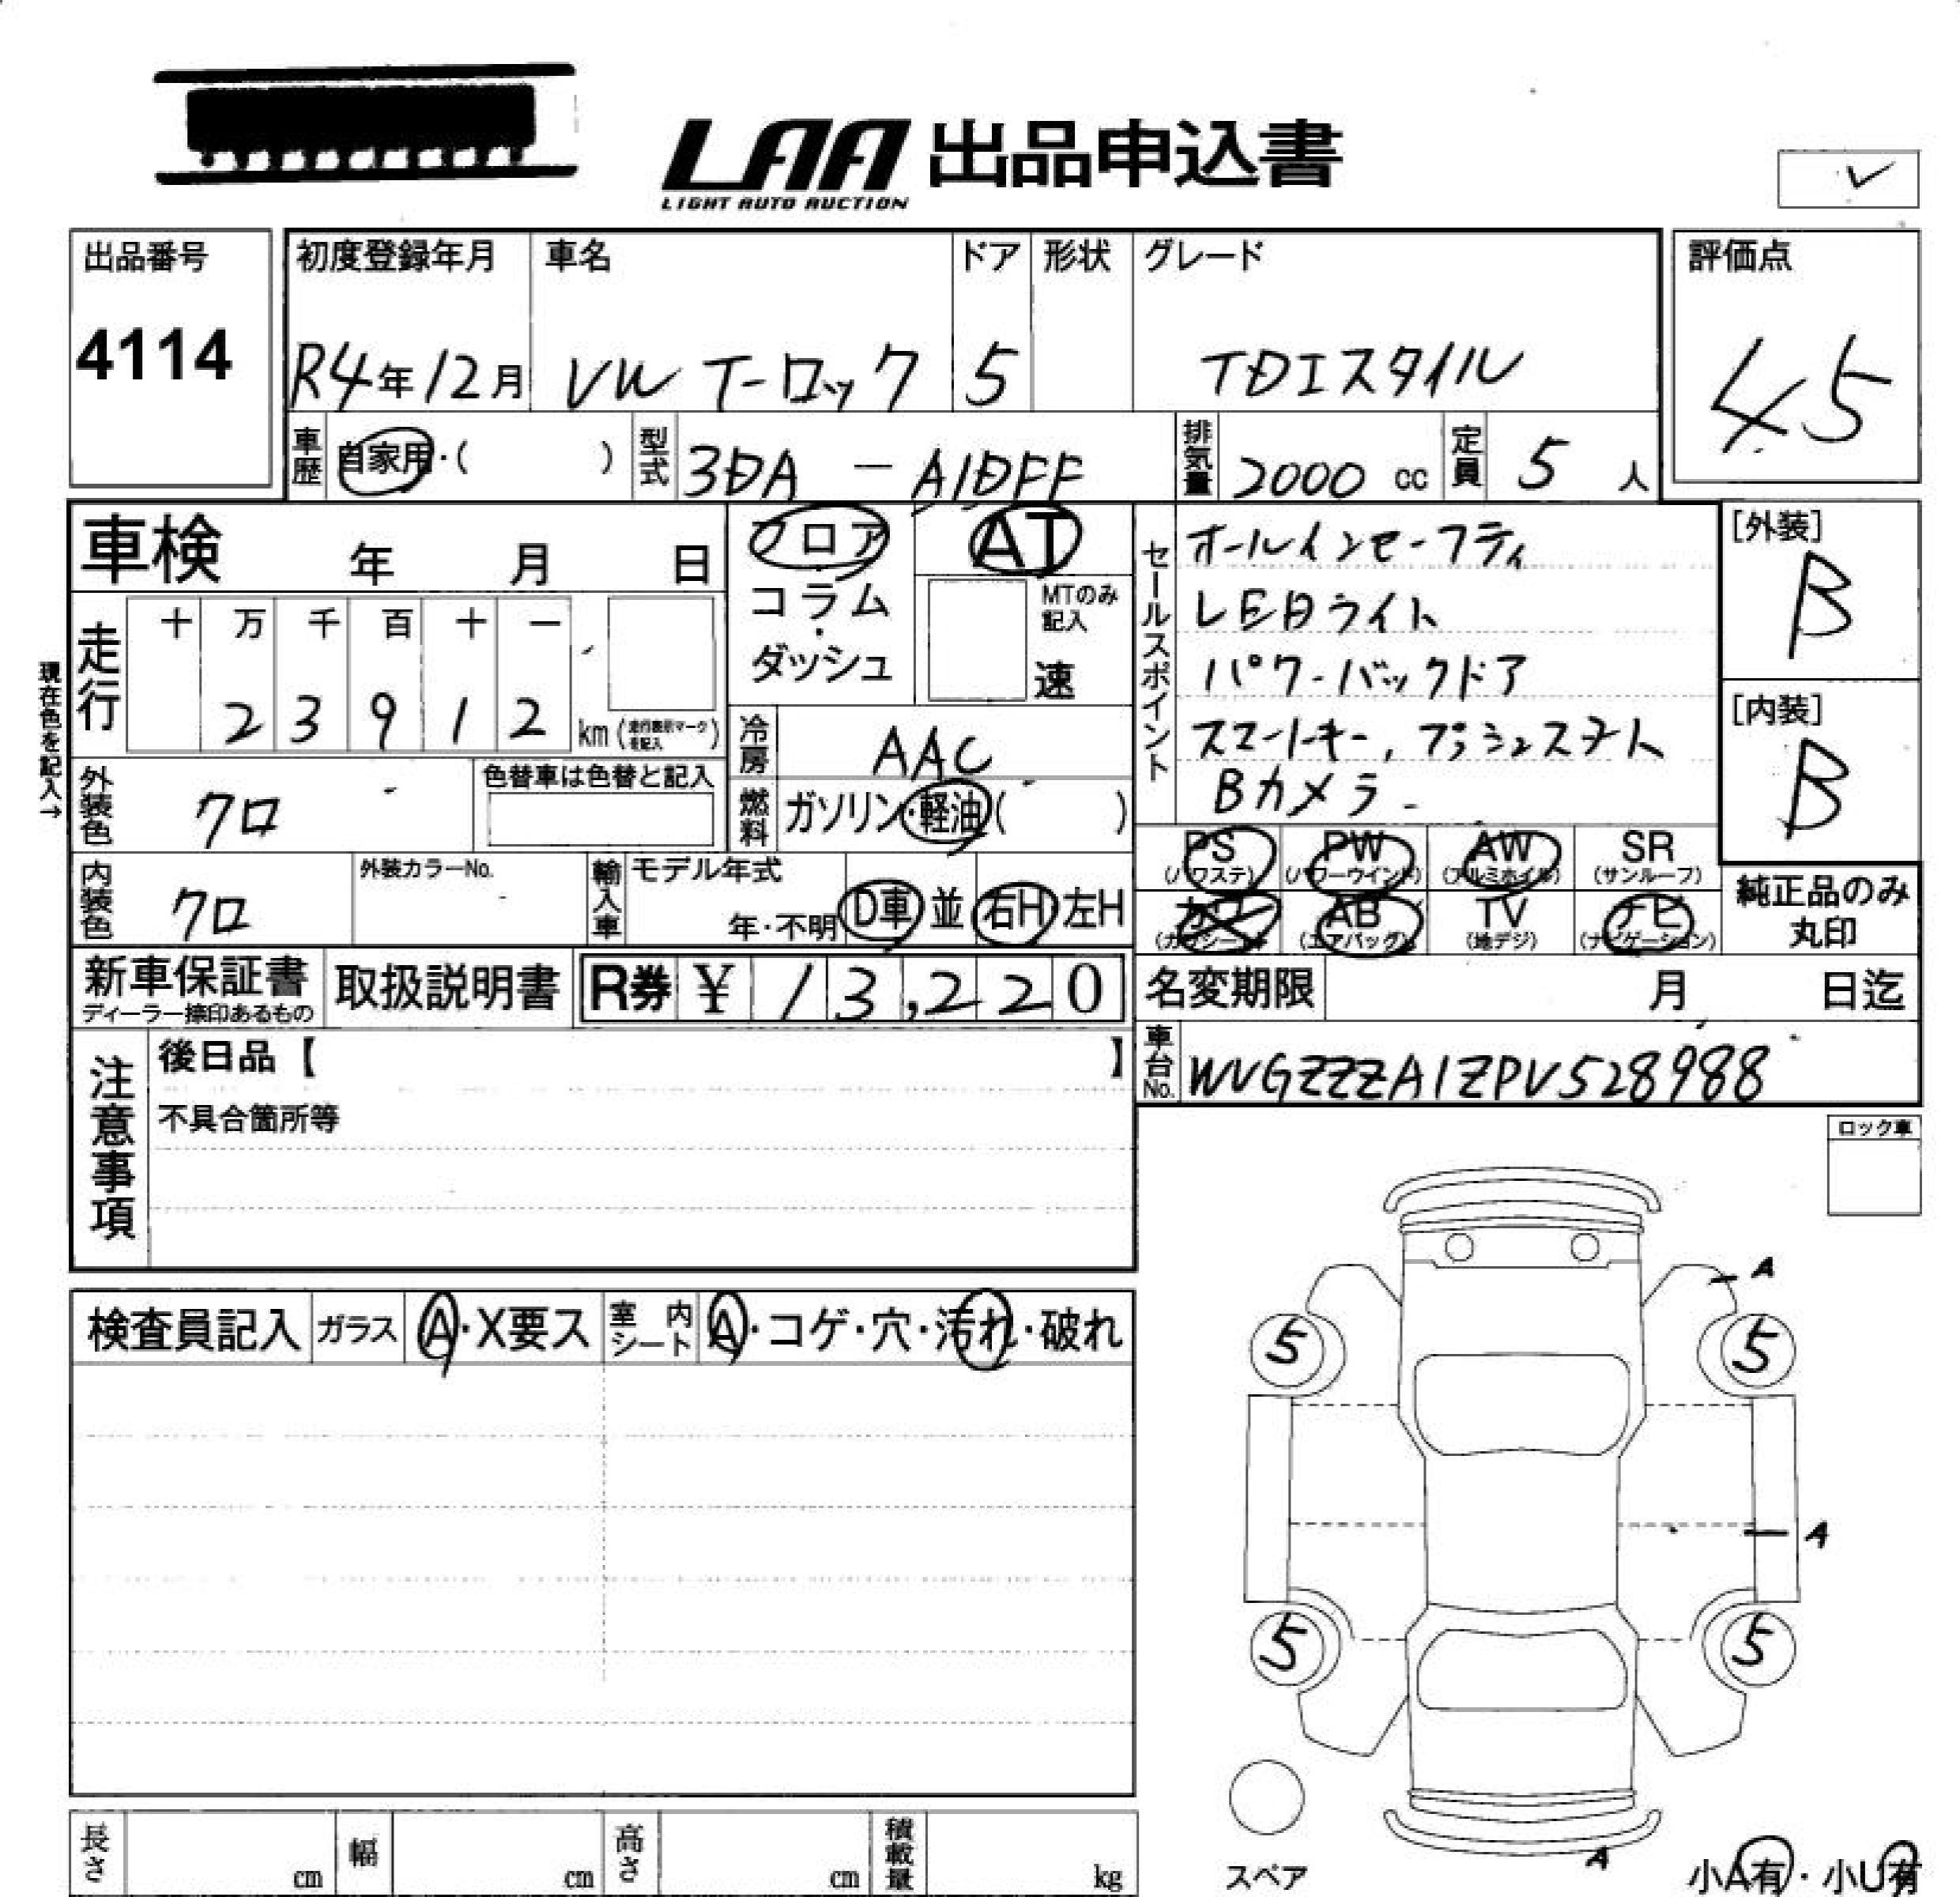 LAA 出品申込書
LIGHT AUTO AUCTION
✓
出品番号
4114
初度登録年月 車名 ドア 形状 グレード
R4年12月 VW T-ロック 5 TDIスタイル
評価点
4.5
車歴 自家用・( ) 型式 3DA-A1DFF 排気量 2000 cc 定員 5 人
車検 年 月 日
フロア・コラム・ダッシュ
AT
MTのみ記入
速
セールスポイント
オールインセーフティ
LEDライト
パワーバックドア
スマートキー, プッシュスタート
Bカメラ
[外装]
B
[内装]
B
現在色を記入→
走行 十 万 千 百 十 一
2 3 9 1 2 km (走行表示マークを記入)
冷房 AAC
外装色 クロ 色替車は色替と記入
燃料 ガソリン・軽油( )
内装色 クロ 外装カラーNo. 輸入車 モデル年式 年・不明 D車 並 右H 左H
PS (パワステ) PW (パワーウインド) AW (アルミホイル) SR (サンルーフ)
カワ (カワシート) AB (エアバッグ) TV (地デジ) ナビ (ナビゲーション)
純正品のみ丸印
新車保証書
ディーラー捺印あるもの
取扱説明書 R券 ¥ 13,220
名変期限 月 日迄
車台No. WVGZZZA1ZPV528988
注意事項
後日品【 】
不具合箇所等
ロック車
検査員記入 ガラス A・X要ス 室内シート A・コゲ・穴・汚れ・破れ
A
5 5
A
5 5
A
スペア
小A有・小U有
長さ cm 幅 cm 高さ cm 積載量 kg